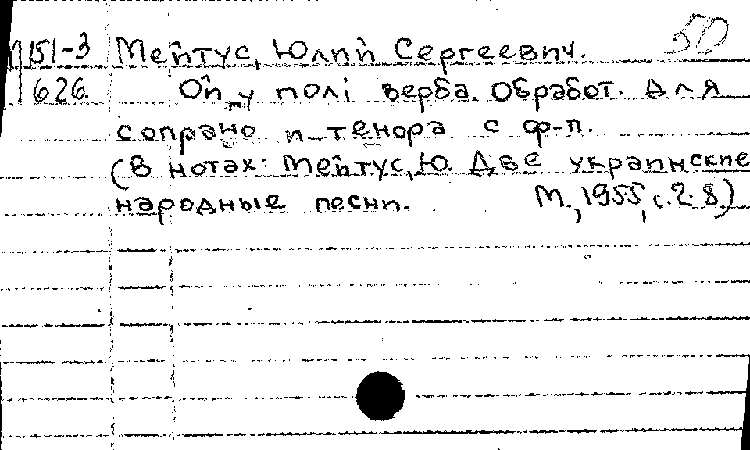 50
М 151-3 Мейтус, Юлий Сергеевич.
626 Ой у полі верба. Обработ. для
сопрано и тенора с ф-п.
(В нотах: Мейтус, Ю. Две украинские
народные песни. М., 1955, с. 2-8.)